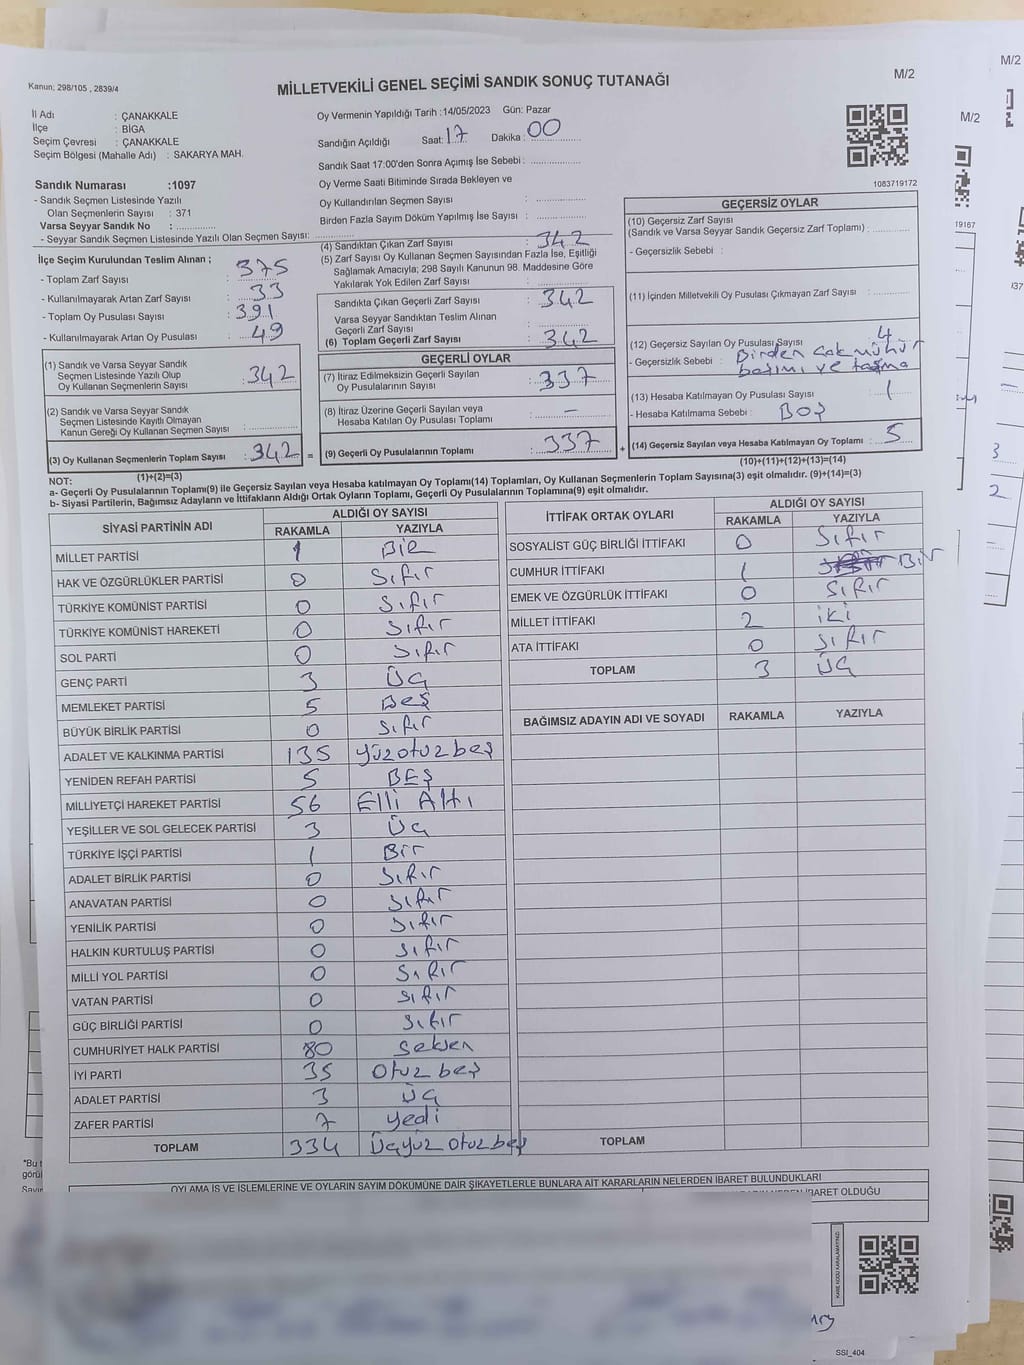 Kanun; 298/105 , 2839/4
MİLLETVEKİLİ GENEL SEÇİMİ SANDIK SONUÇ TUTANAĞI
M/2
M/2
M/2
İl Adı : ÇANAKKALE
İlçe : BİGA
Seçim Çevresi : ÇANAKKALE
Seçim Bölgesi (Mahalle Adı) : SAKARYA MAH.
Sandık Numarası :1097
- Sandık Seçmen Listesinde Yazılı
Olan Seçmenlerin Sayısı : 371
Varsa Seyyar Sandık No :
- Seyyar Sandık Seçmen Listesinde Yazılı Olan Seçmen Sayısı:
Oy Vermenin Yapıldığı Tarih :14/05/2023 Gün: Pazar
Sandığın Açıldığı Saat: 17 Dakika: 00
Sandık Saat 17:00'den Sonra Açımış İse Sebebi :
Oy Verme Saati Bitiminde Sırada Bekleyen ve
Oy Kullandırılan Seçmen Sayısı :
Birden Fazla Sayım Döküm Yapılmış İse Sayısı :
1083719172
İlçe Seçim Kurulundan Teslim Alınan ;
- Toplam Zarf Sayısı : 375
- Kullanılmayarak Artan Zarf Sayısı : 33
- Toplam Oy Pusulası Sayısı : 391
- Kullanılmayarak Artan Oy Pusulası : 49
(1) Sandık ve Varsa Seyyar Sandık
Seçmen Listesinde Yazılı Olup
Oy Kullanan Seçmenlerin Sayısı : 342
(2) Sandık ve Varsa Seyyar Sandık
Seçmen Listesinde Kayıtlı Olmayan
Kanun Gereği Oy Kullanan Seçmen Sayısı :
(3) Oy Kullanan Seçmenlerin Toplam Sayısı : 342 =
(1)+(2)=(3)
(4) Sandıktan Çıkan Zarf Sayısı : 342
(5) Zarf Sayısı Oy Kullanan Seçmen Sayısından Fazla İse, Eşitliği
Sağlamak Amacıyla; 298 Sayılı Kanunun 98. Maddesine Göre
Yakılarak Yok Edilen Zarf Sayısı :
Sandıkta Çıkan Geçerli Zarf Sayısı : 342
Varsa Seyyar Sandıktan Teslim Alınan
Geçerli Zarf Sayısı :
(6) Toplam Geçerli Zarf Sayısı : 342
GEÇERLİ OYLAR
(7) İtiraz Edilmeksizin Geçerli Sayılan
Oy Pusulalarının Sayısı : 337
(8) İtiraz Üzerine Geçerli Sayılan veya
Hesaba Katılan Oy Pusulası Toplamı : —
(9) Geçerli Oy Pusulalarının Toplamı : 337 +
GEÇERSİZ OYLAR
(10) Geçersiz Zarf Sayısı
(Sandık ve Varsa Seyyar Sandık Geçersiz Zarf Toplamı) :
- Geçersizlik Sebebi :
(11) İçinden Milletvekili Oy Pusulası Çıkmayan Zarf Sayısı :
(12) Geçersiz Sayılan Oy Pusulası Sayısı : 4
- Geçersizlik Sebebi : Birden çok mühür
basımı ve taşma
(13) Hesaba Katılmayan Oy Pusulası Sayısı : 1
- Hesaba Katılmama Sebebi : Boş
(14) Geçersiz Sayılan veya Hesaba Katılmayan Oy Toplamı : 5
(10)+(11)+(12)+(13)=(14)
NOT:
a- Geçerli Oy Pusulalarının Toplamı(9) ile Geçersiz Sayılan veya Hesaba katılmayan Oy Toplamı(14) Toplamları, Oy Kullanan Seçmenlerin Toplam Sayısına(3) eşit olmalıdır. (9)+(14)=(3)
b- Siyasi Partilerin, Bağımsız Adayların ve İttifakların Aldığı Ortak Oyların Toplamı, Geçerli Oy Pusulalarının Toplamına(9) eşit olmalıdır.
SİYASİ PARTİNİN ADI ALDIĞI OY SAYISI
RAKAMLA YAZIYLA
MİLLET PARTİSİ 1 Bir
HAK VE ÖZGÜRLÜKLER PARTİSİ 0 Sıfır
TÜRKİYE KOMÜNİST PARTİSİ 0 Sıfır
TÜRKİYE KOMÜNİST HAREKETİ 0 Sıfır
SOL PARTİ 0 Sıfır
GENÇ PARTİ 3 Üç
MEMLEKET PARTİSİ 5 Beş
BÜYÜK BİRLİK PARTİSİ 0 Sıfır
ADALET VE KALKINMA PARTİSİ 135 yüzotuzbeş
YENİDEN REFAH PARTİSİ 5 BEŞ
MİLLİYETÇİ HAREKET PARTİSİ 56 Elli Altı
YEŞİLLER VE SOL GELECEK PARTİSİ 3 Üç
TÜRKİYE İŞÇİ PARTİSİ 1 Bir
ADALET BİRLİK PARTİSİ 0 Sıfır
ANAVATAN PARTİSİ 0 Sıfır
YENİLİK PARTİSİ 0 Sıfır
HALKIN KURTULUŞ PARTİSİ 0 Sıfır
MİLLİ YOL PARTİSİ 0 Sıfır
VATAN PARTİSİ 0 Sıfır
GÜÇ BİRLİĞİ PARTİSİ 0 Sıfır
CUMHURİYET HALK PARTİSİ 80 Seksen
İYİ PARTİ 35 Otuz beş
ADALET PARTİSİ 3 Üç
ZAFER PARTİSİ 7 yedi
TOPLAM 334 Üçyüz otuzbeş
İTTİFAK ORTAK OYLARI ALDIĞI OY SAYISI
RAKAMLA YAZIYLA
SOSYALİST GÜÇ BİRLİĞİ İTTİFAKI 0 Sıfır
CUMHUR İTTİFAKI 1 Bir
EMEK VE ÖZGÜRLÜK İTTİFAKI 0 Sıfır
MİLLET İTTİFAKI 2 iki
ATA İTTİFAKI 0 Sıfır
TOPLAM 3 Üç
BAĞIMSIZ ADAYIN ADI VE SOYADI RAKAMLA YAZIYLA
TOPLAM
OYLAMA İŞ VE İŞLEMLERİNE VE OYLARIN SAYIM DÖKÜMÜNE DAİR ŞİKAYETLERLE BUNLARA AİT KARARLARIN NELERDEN İBARET BULUNDUKLARI
İBARET OLDUĞU
KARE KODU KARALAMAYINIZ!
SSI_404
19167
3
2